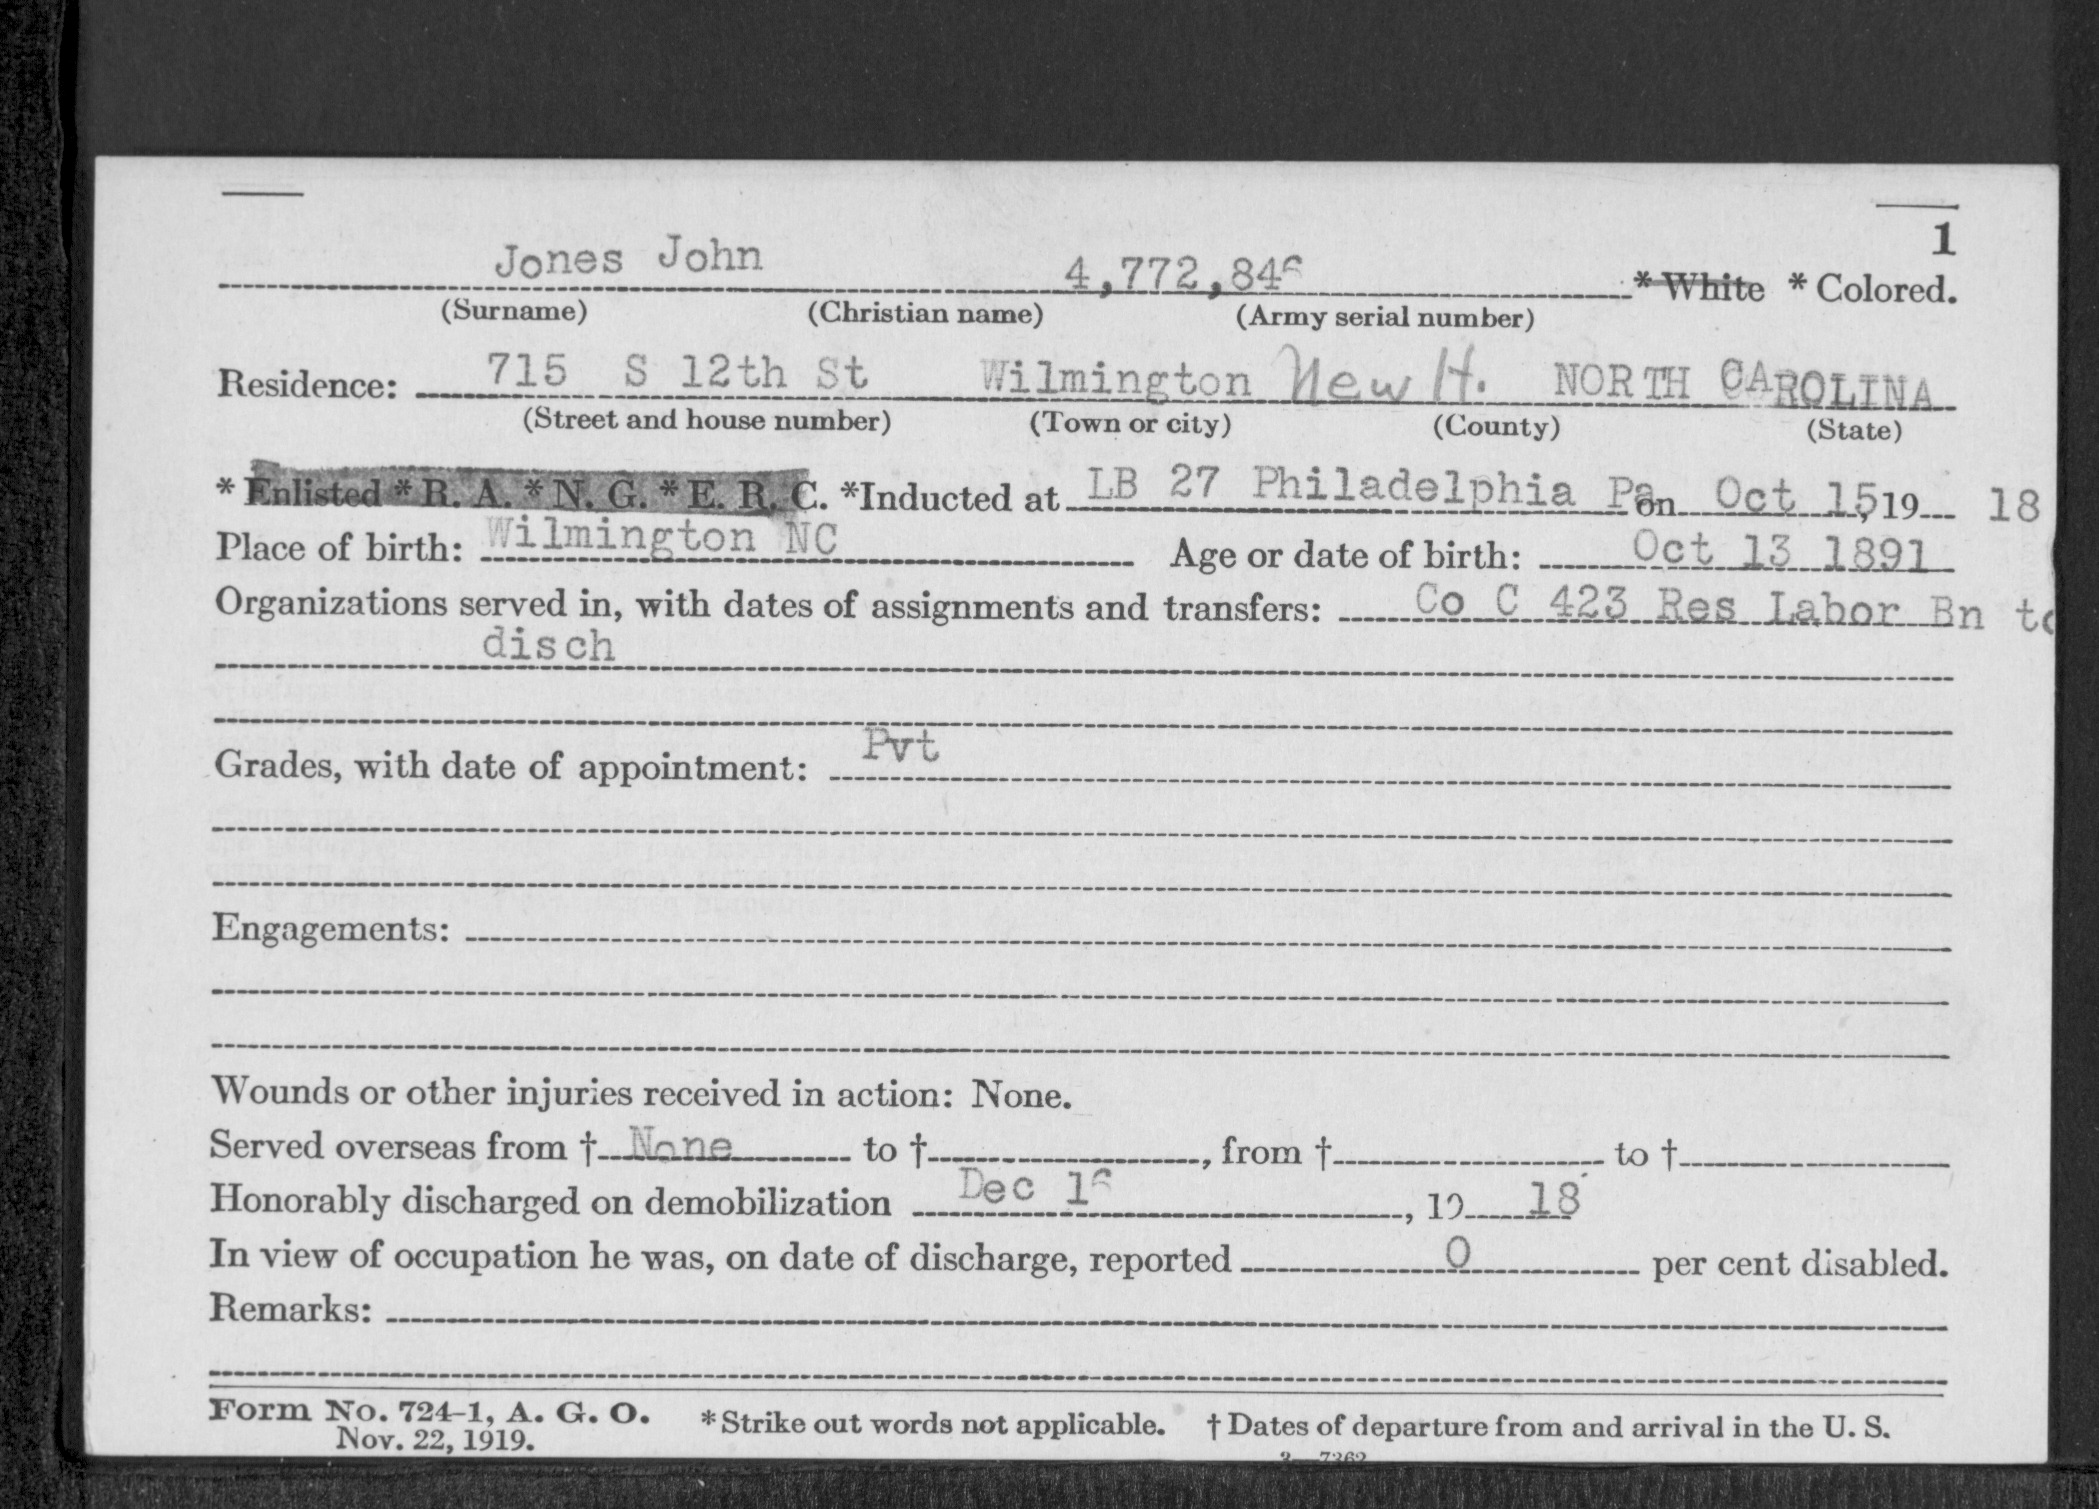 1
Jones John 4,772,846 * White * Colored.
(Surname) (Christian name) (Army serial number)
Residence: 715 S 12th St Wilmington New H. NORTH CAROLINA
(Street and house number) (Town or city) (County) (State)
* Enlisted * R. A. * N. G. * E. R. C. *Inducted at LB 27 Philadelphia Pa on Oct 15, 19 18
Place of birth: Wilmington NC Age or date of birth: Oct 13 1891
Organizations served in, with dates of assignments and transfers: Co C 423 Res Labor Bn to
disch
Grades, with date of appointment: Pvt
Engagements:
Wounds or other injuries received in action: None.
Served overseas from † None to †, from † to †
Honorably discharged on demobilization Dec 16, 19 18
In view of occupation he was, on date of discharge, reported 0 per cent disabled.
Remarks:
Form No. 724-1, A. G. O. * Strike out words not applicable. † Dates of departure from and arrival in the U. S.
Nov. 22, 1919.
3—7362